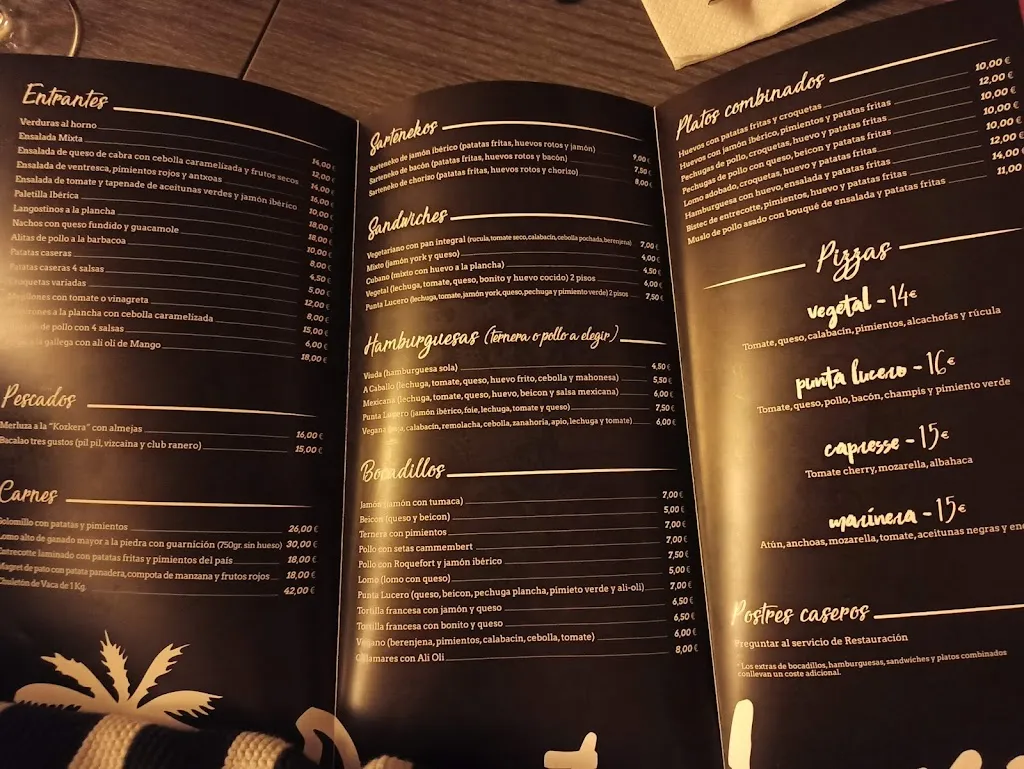 Entrantes
Verduras al horno 14,00 €
Ensalada Mixta 12,00 €
Ensalada de queso de cabra con cebolla caramelizada y frutos secos 14,00 €
Ensalada de ventresca, pimientos rojos y antxoas 16,00 €
Ensalada de tomate y tapenade de aceitunas verdes y jamón ibérico 10,00 €
Paletilla Ibérica 18,00 €
Langostinos a la plancha 18,00 €
Nachos con queso fundido y guacamole 10,00 €
Alitas de pollo a la barbacoa 8,00 €
Patatas caseras 4,50 €
Patatas caseras 4 salsas 5,00 €
Croquetas variadas 12,00 €
con tomate o vinagreta 8,00 €
a la plancha con cebolla caramelizada 15,00 €
de pollo con 4 salsas 6,00 €
gallega con ali oli de Mango 18,00 €
Pescados
Merluza a la "Kozkera" con almejas 16,00 €
Bacalao tres gustos (pil pil, vizcaina y club ranero) 15,00 €
Carnes
Solomillo con patatas y pimientos 26,00 €
Lomo alto de ganado mayor a la piedra con guarnición (750gr. sin hueso) 30,00 €
Entrecotte laminado con patatas fritas y pimientos del país 18,00 €
Magret de pato con patata panadera, compota de manzana y frutos rojos 18,00 €
Chuletón de Vaca de 1 Kg. 42,00 €
Sartenekos
Sarteneko de jamón ibérico (patatas fritas, huevos rotos y jamón) 9,00 €
Sarteneko de bacón (patatas fritas, huevos rotos y bacón) 7,50 €
Sarteneko de chorizo (patatas fritas, huevos rotos y chorizo) 8,00 €
Sandwiches
Vegetariano con pan integral (rucula, tomate seco, calabacin, cebolla pochada, berenjena) 7,00 €
Mixto (jamón york y queso) 4,00 €
Cubano (mixto con huevo a la plancha) 4,50 €
Vegetal (lechuga, tomate, queso, bonito y huevo cocido) 2 pisos 4,00 €
Punta Lucero (lechuga, tomate, jamón york, queso, pechuga y pimiento verde) 2 pisos 7,50 €
Hamburguesas (Ternera o pollo a elegir)
Viuda (hamburguesa sola) 4,50 €
A Caballo (lechuga, tomate, queso, huevo frito, cebolla y mahonesa) 5,50 €
Mexicana (lechuga, tomate, queso, huevo, beicon y salsa mexicana) 6,00 €
Punta Lucero (jamón ibérico, foie, lechuga, tomate y queso) 7,50 €
Vegana calabacin, remolacha, cebolla, zanahoria, apio, lechuga y tomate) 6,00 €
Bocadillos
Jamón (jamón con tumaca) 7,00 €
Beicon (queso y beicon) 5,00 €
Ternera con pimientos 7,00 €
Pollo con setas cammembert 7,00 €
Pollo con Roquefort y jamón ibérico 7,50 €
Lomo (lomo con queso) 5,00 €
Punta Lucero (queso, beicon, pechuga plancha, pimieto verde y ali-oli) 7,00 €
Tortilla francesa con jamón y queso 6,50 €
Tortilla francesa con bonito y queso 6,50 €
Vegano (berenjena, pimientos, calabacin, cebolla, tomate) 6,00 €
Calamares con Ali Oli 8,00 €
Platos combinados
Huevos con patatas fritas y croquetas 10,00 €
Huevos con jamón ibérico, pimientos y patatas fritas 12,00 €
Pechugas de pollo, croquetas, huevo y patatas fritas 10,00 €
Pechugas de pollo con queso, beicon y patatas fritas 10,00 €
Lomo adobado, croquetas, huevo y patatas fritas 10,00 €
Hamburguesa con huevo, ensalada y patatas fritas 12,00 €
Bistec de entrecotte, pimientos, huevo y patatas fritas 14,00 €
Muslo de pollo asado con bouqué de ensalada y patatas fritas 11,00
Pizzas
vegetal - 14€
Tomate, queso, calabacin, pimientos, alcachofas y rúcula
punta lucero - 16€
Tomate, queso, pollo, bacón, champis y pimiento verde
capresse - 15€
Tomate cherry, mozarella, albahaca
marinera - 15€
Atún, anchoas, mozarella, tomate, aceitunas negras y
Postres caseros
Preguntar al servicio de Restauración
* Los extras de bocadillos, hamburguesas, sandwiches y platos combinados
conllevan un coste adicional.